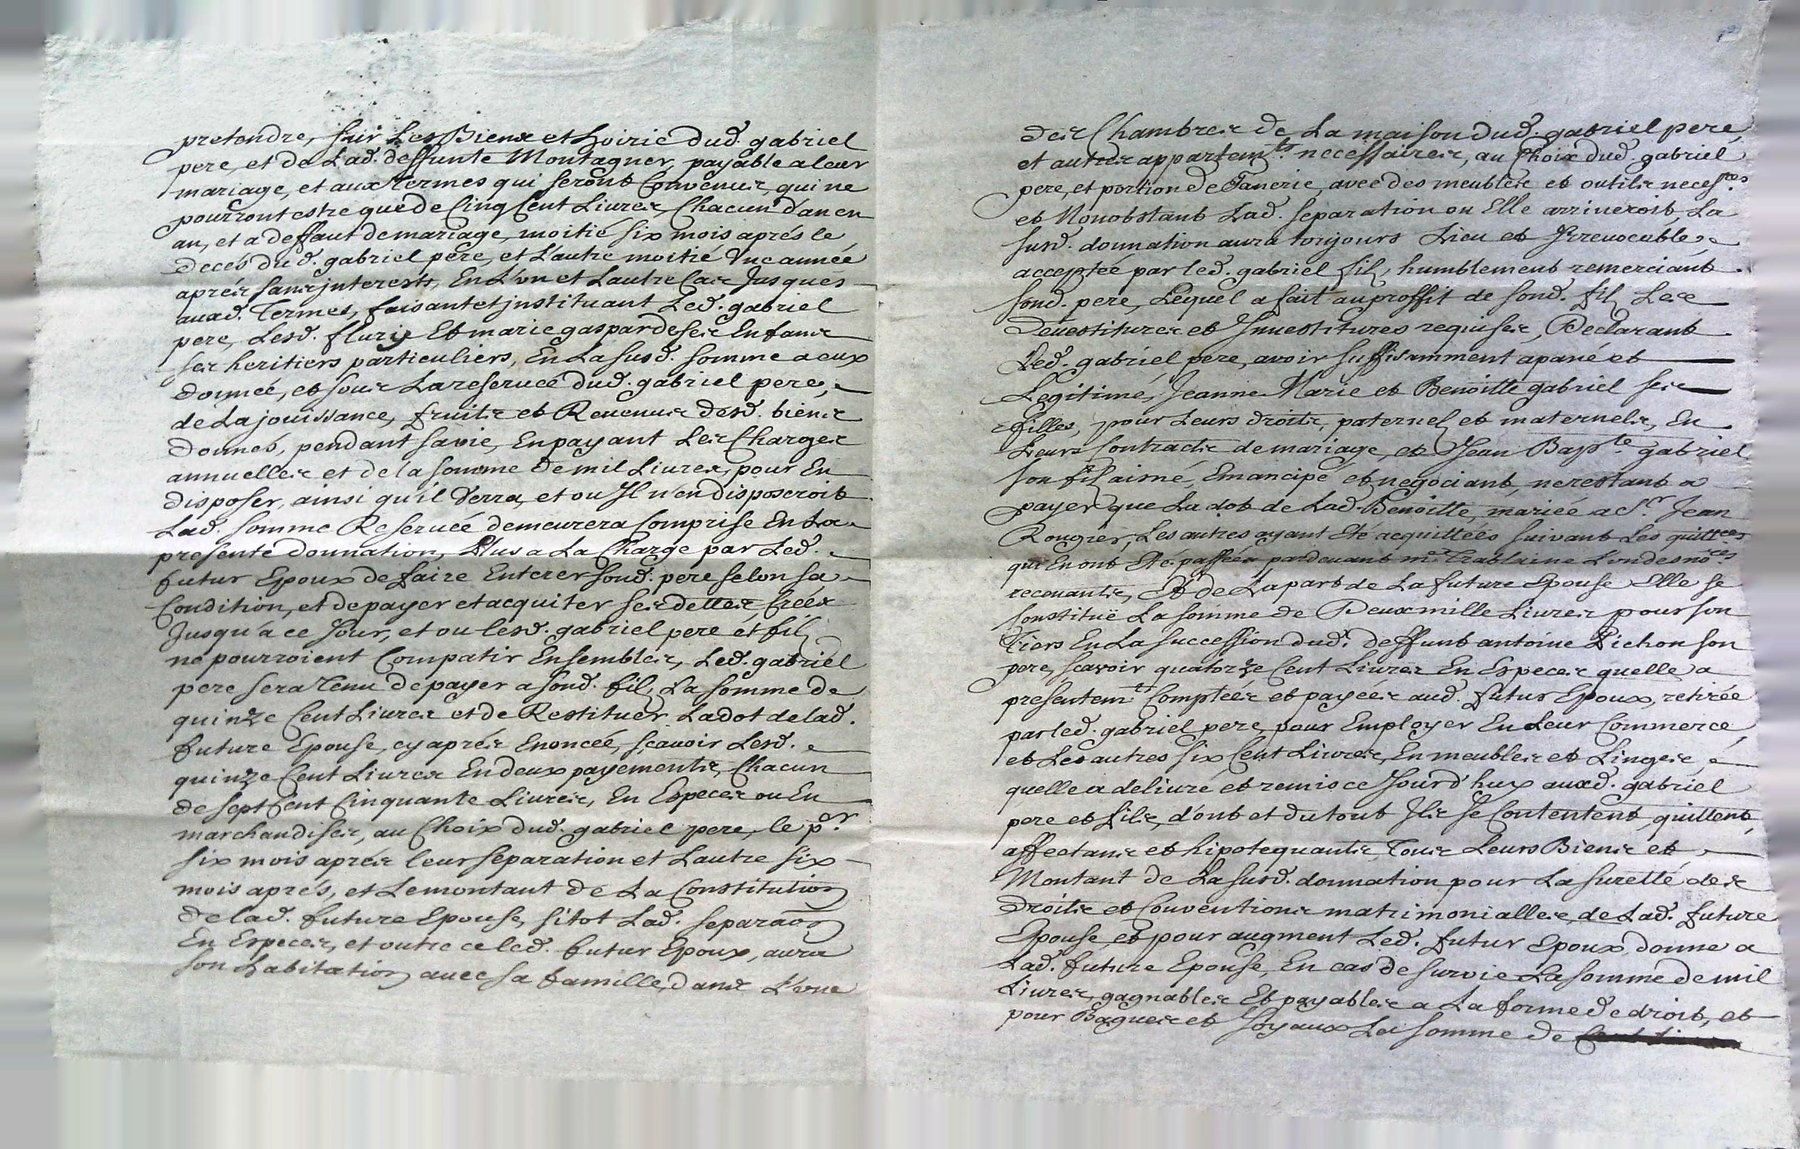 pretendre, sur Les Biens et hoirie dud. gabriel
pere, et de Lad. deffunte Montagner, payable a leur
mariage, et aux termes qui seront Convenus, qui ne
pourront estre que de Cinq Cent Livres, Chacun d'an en
an, et a deffaut de mariage, moitié six mois aprés le
deces dud. gabriel pere, et L'autre moitié Une année
apres sans jnterests, En L'un et Lautre Cas Jusques
auxd. Termes, faisant et jnstituant Led. gabriel
pere, Lesd. fleury Et marie gasparde ses Enfans
ses heritiers particuliers, En La susd. somme a eux
donneé, et sous La reserveé dud. gabriel pere,
de La jouissance, fruits et Revenus desd. biens
donnés, pendant sa vie, En payant Les Charges
annuelles et de la somme de mil Livres, pour En
disposer, ainsi qu'il Verra, et ou Jl n'en disposeroit
Lad. somme Reserveé demeurera Comprise En La
presente donnation, Plus a La Charge par Led.
futur Epoux de faire Enterer sond. pere selon sa
Condition, et de payer et acquiter ses dettes, Créés
Jusqu'a ce Jour, et ou lesd. gabriel pere et fils
ne pourroient Compatir Ensembles, Led. gabriel
pere sera Tenu de payer a sond. fils, La somme de
quinze Cent Livres et de Restituer Ladot de lad.
future Epouse, cy aprés Enoncée, sçavoir Lesd.
quinze Cent Livres En deux payements, Chacun
de sept Cent Cinquante Livres, En Especes ou En
marchandises, au Choix dud. gabriel pere, le p.er
six mois aprés leur separation et Lautre six
mois aprés, et Le montant de La Constitution
de lad. future Epouse, sitot Lad. separaon
En Especes, et outre ce led. futur Epoux, aura
son habitation avec sa famille, dans L'une
des Chambres de La maison dud. gabriel pere,
et autres appartem.ts necessaires, au Choix dud. gabriel
pere, et portion de Tanerie, avec des meubles et outils neces.res
et Nonobstant Lad. separation ou Elle arriveroit, La
susd. donnation aura toujours Lieu et Jrrevocable,
acceptée par led. gabriel fils, humblement remerciant
sond. pere, Lequel a fait au proffit de sond. fils Les
Devestitures et Jnvestitures requises, Declarant
Led. gabriel pere, avoir suffisamment apané et
Legitimé, Jeanne Marie et Benoitte gabriel ses
filles, pour Leurs droits, paternels et maternels, En
Leurs Contracts de mariage, et Jean Bap.te gabriel
son fils ainé, Emancipé et negociant, ne restant a
payer que La dot de Lad. Benoitte, mariée a S.r Jean
Rougier, Les autres ayant Eté acquittées suivant Les quittces
qui En ont Eté passées pardevant m.e L'un des no.res
recevants, Et de La part de La future Epouse Elle se
Constituë La somme de Deux mille Livres pour son
Tiers En La succession dud. deffunt antoine Pichon son
pere, scavoir quatorze Cent Livres En Especes quelle a
presentem.t Comptées et payées aud. futur Epoux, retirée
par led. gabriel pere, pour Employer En Leur Commerce,
et Les autres six Cent Livres, En meubles et Linges,
quelle a delivré et remis ce Jourd'huy auxd. gabriel
pere et fils, d'ont et du tout Jls se Contentent, quittent,
affectants et hipotequants, Tous Leurs Biens et
Montant de La susd. donnation pour La sureté des
droits et Conventions matrimonialles, de Lad. future
Epouse, et pour augment Led. futur Epoux, donne a
Lad. future Epouse, En cas de survie La somme de mil
Livres, gagnables Et payables a La forme de droit, et
pour Bagues et Joyaux La somme de